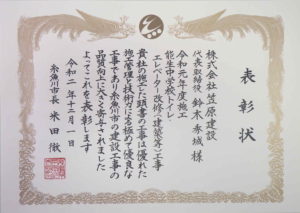 表彰状
株式会社笠原建設
代表取締役 鈴木秀城 様
令和元年度施工
能生中学校トイレ・
エレベーター改修(建築等)工事
貴社の施工した頭書の工事は優れた
施工管理と技術力による極めて優良な
工事であり糸魚川市の建設工事の
品質向上に大きく寄与されました
よってこれを表彰します
令和二年十二月一日
糸魚川市長 米田徹